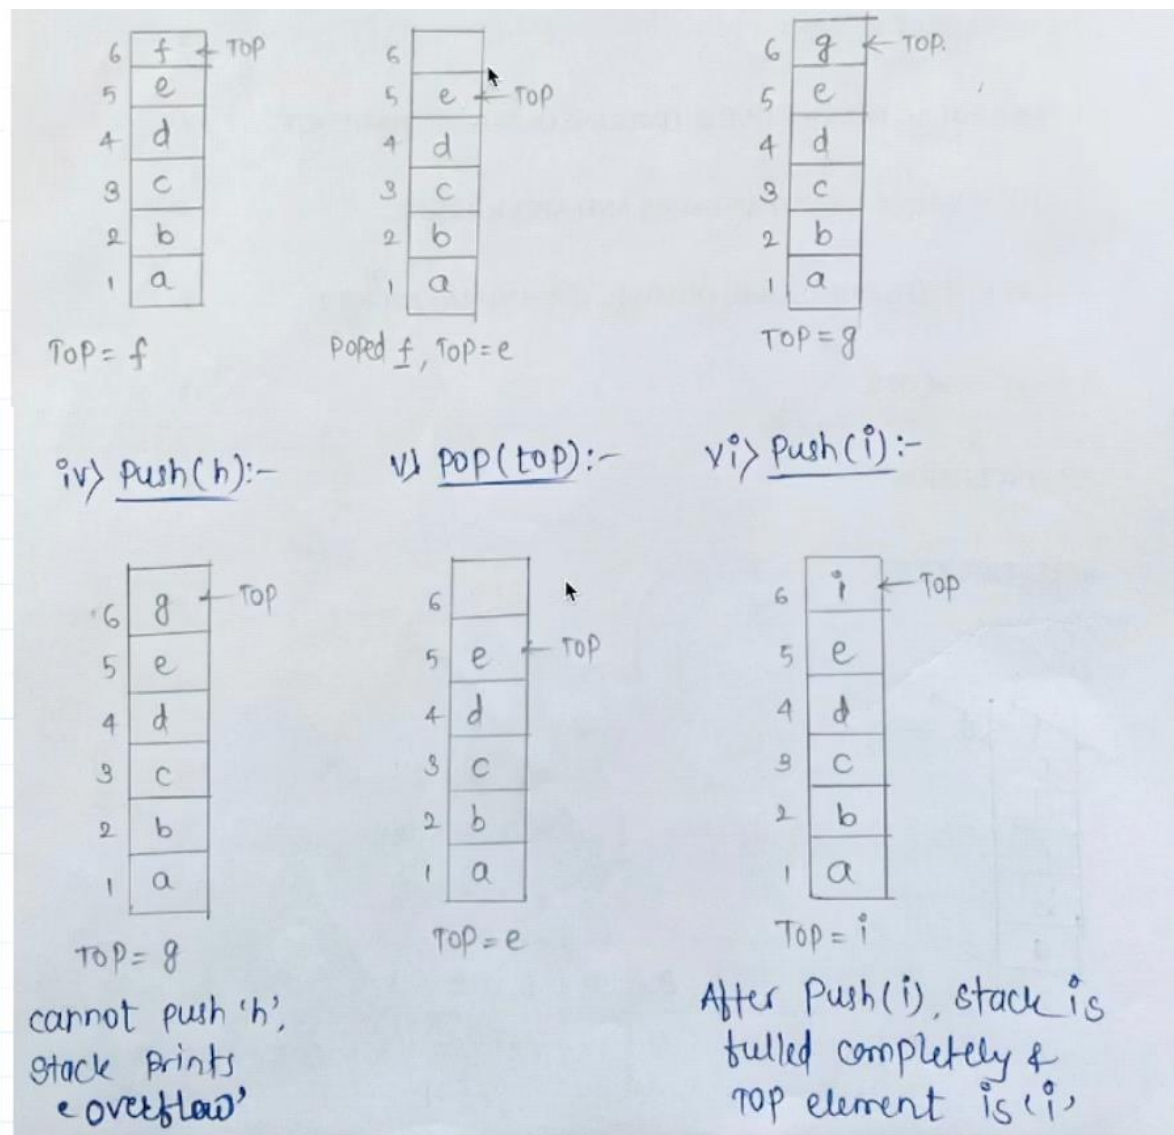 6 f ← TOP
5 e
4 d
3 c
2 b
1 a
TOP = f
6
5 e ← TOP
4 d
3 c
2 b
1 a
Poped f, TOP=e
6 g ← TOP.
5 e
4 d
3 c
2 b
1 a
TOP = g
iv> Push(h):-
6 g ← TOP
5 e
4 d
3 c
2 b
1 a
TOP= g
cannot push 'h',
stack Prints
'overflow'
v> POP(top):-
6
5 e ← TOP
4 d
3 c
2 b
1 a
TOP = e
vi> Push(i):-
6 i ← TOP
5 e
4 d
3 c
2 b
1 a
TOP = i
After Push(i), stack is
fulled completely &
TOP element is 'i'